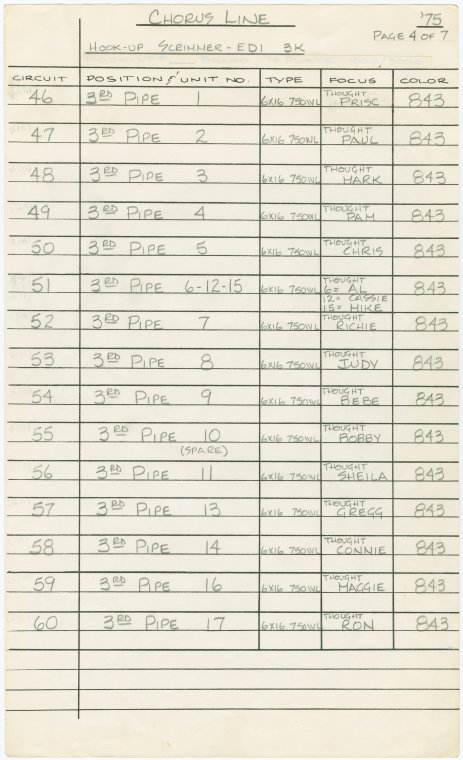 CHORUS LINE '75
PAGE 4 OF 7
HOOK-UP SCRIMMER-EDI 3K
CIRCUIT POSITION & UNIT NO. TYPE FOCUS COLOR
46 3RD PIPE 1 6X16 750WL THOUGHT PRISC 843
47 3RD PIPE 2 6X16 750WL THOUGHT PAUL 843
48 3RD PIPE 3 6X16 750WL THOUGHT MARK 843
49 3RD PIPE 4 6X16 750WL THOUGHT PAM 843
50 3RD PIPE 5 6X16 750WL THOUGHT CHRIS 843
51 3RD PIPE 6-12-15 6X16 750WL THOUGHT 843
6= AL
12= CASSIE
15= MIKE
52 3RD PIPE 7 6X16 750WL THOUGHT RICHIE 843
53 3RD PIPE 8 6X16 750WL THOUGHT JUDY 843
54 3RD PIPE 9 6X16 750WL THOUGHT BEBE 843
55 3RD PIPE 10 6X16 750WL THOUGHT BOBBY 843
(SPARE)
56 3RD PIPE 11 6X16 750WL THOUGHT SHEILA 843
57 3RD PIPE 13 6X16 750WL THOUGHT GREGG 843
58 3RD PIPE 14 6X16 750WL THOUGHT CONNIE 843
59 3RD PIPE 16 6X16 750WL THOUGHT MAGGIE 843
60 3RD PIPE 17 6X16 750WL THOUGHT RON 843